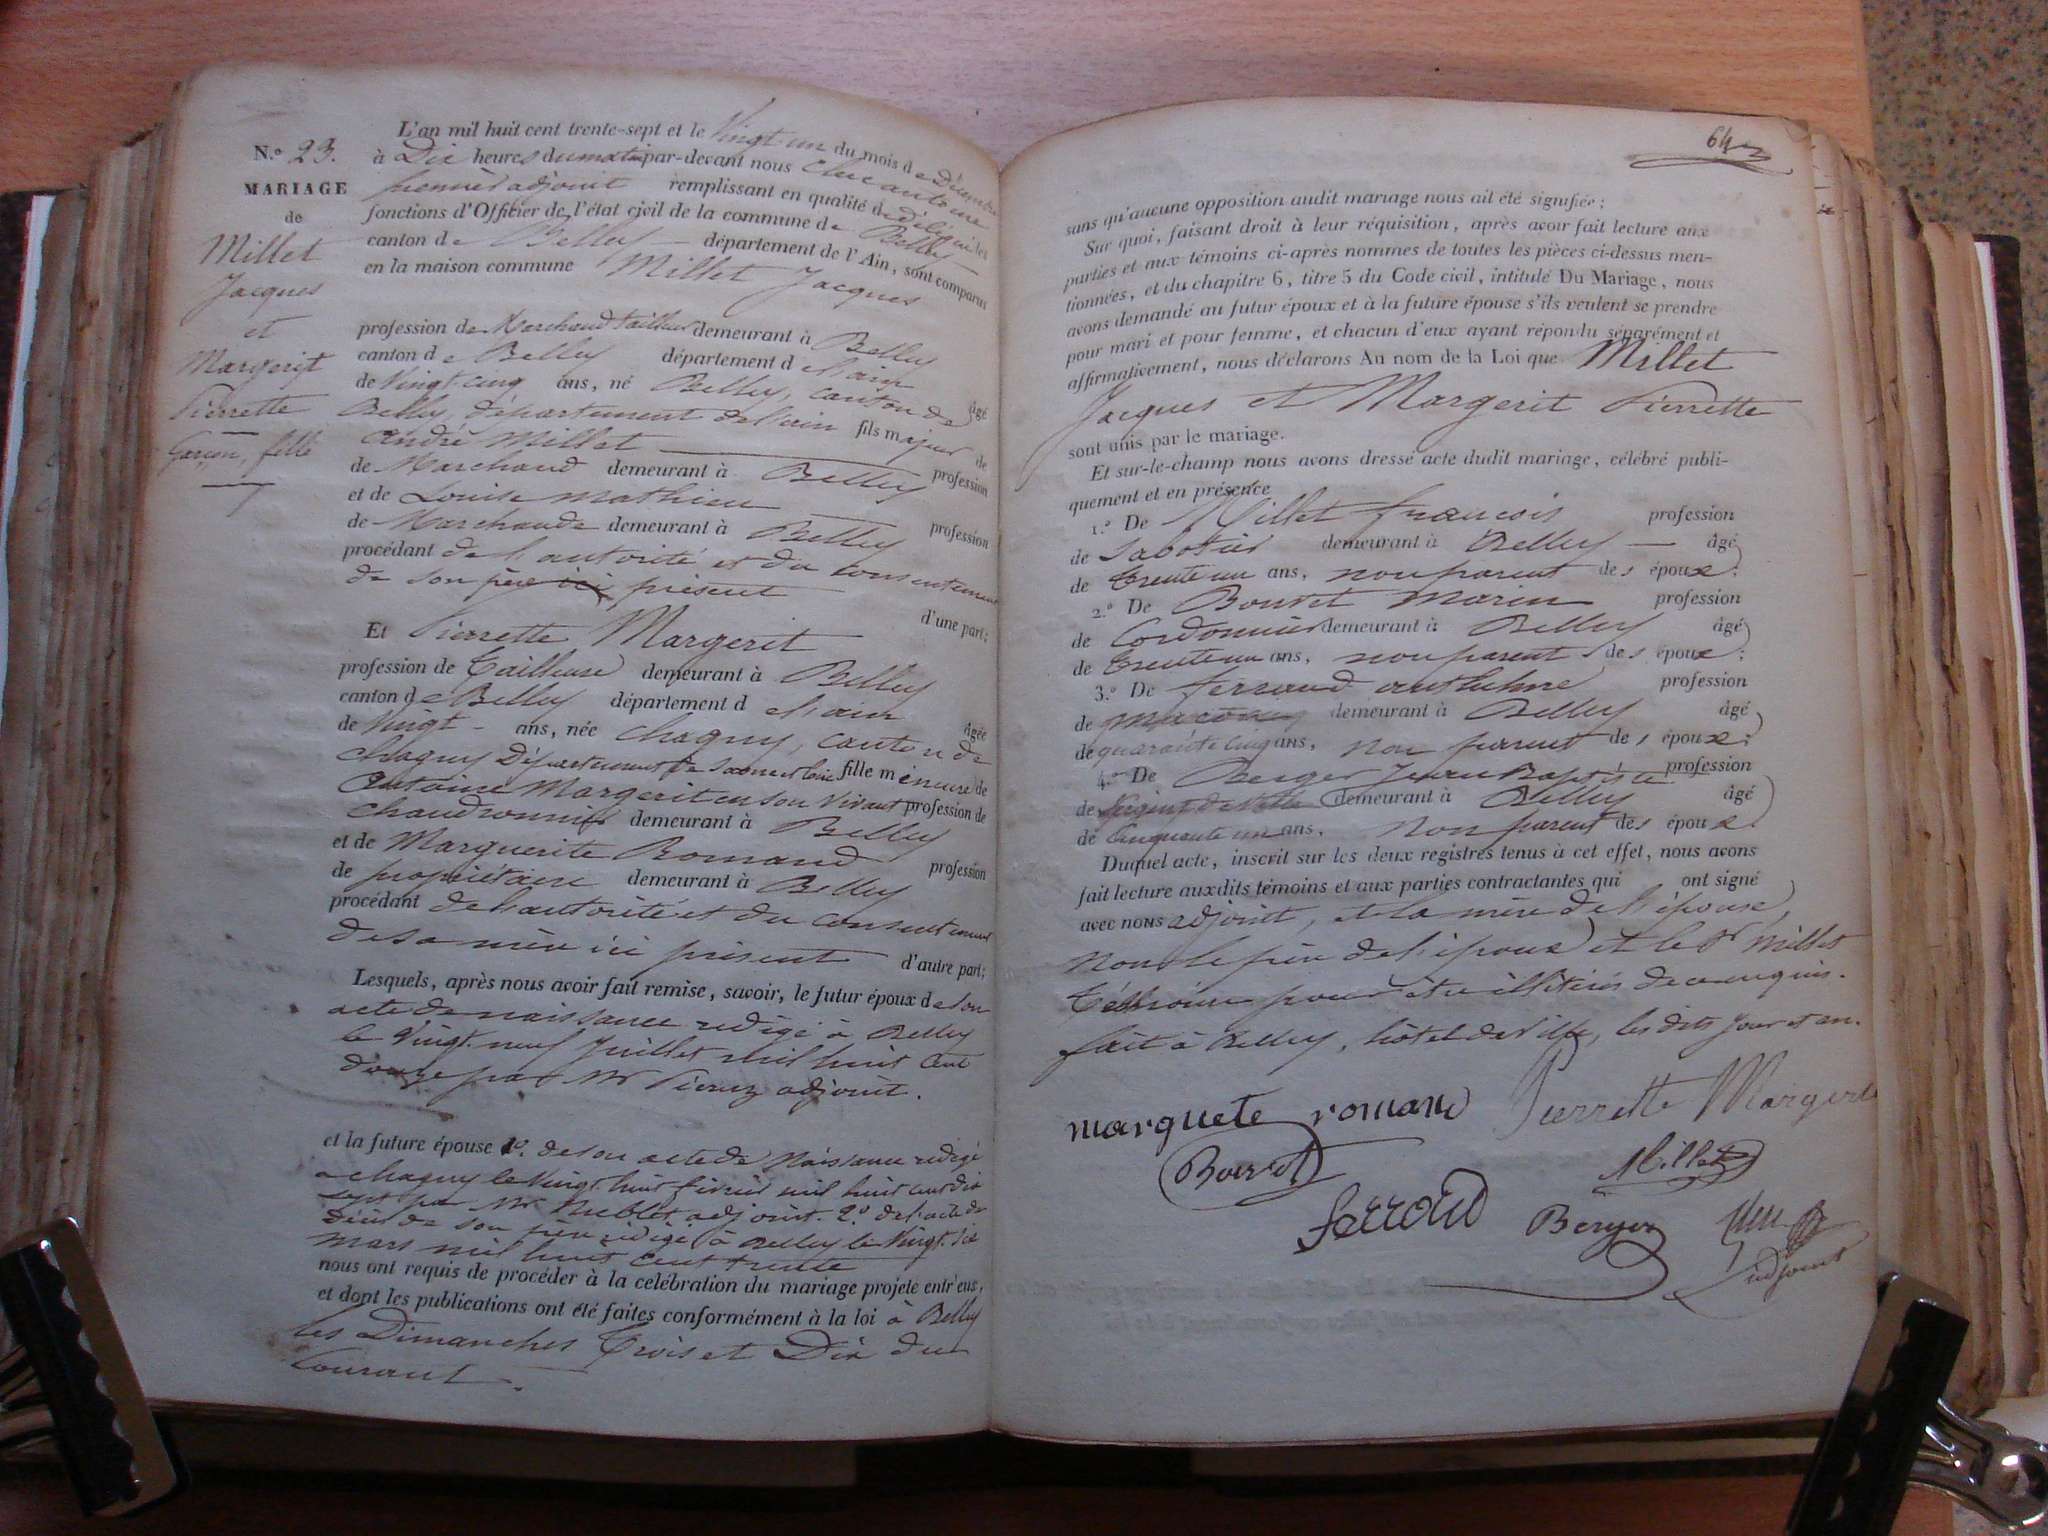 N.° 23.
MARIAGE
de
Millet
Jacques
et
Margerit
Pierrette
Garçon, fille
L'an mil huit cent trente-sept et le Vingt un du mois de Décembre
à Dix heures du matin par-devant nous antoine
premier adjoint remplissant en qualité de délégué les
fonctions d'Officier de l'état civil de la commune de Belley
canton de Belley département de l'Ain, sont comparus
en la maison commune Millet Jacques
profession de Marchand tailleur demeurant à Belley
canton de Belley département de l'ain âgé
de Vingt cinq ans, né Belley, canton de
Belley, département de l'ain fils majeur de
andré Millet profession
de Marchand demeurant à Belley
et de Louise mathieu profession
de Marchande demeurant à Belley
procédant de l'autorité et du consentement
de son père ici présent
d'une part;
Et Pierrette Margerit
profession de Tailleuse demeurant à Belley
canton de Belley département de l'ain âgée
de Vingt - ans, née Chagny, canton de
Chagny Département de Saone et loire fille mineure de
Antoine Margerit en son vivant profession de
Chaudronnier demeurant à Belley
et de Marguerite Romand profession
de propriétaire demeurant à Belley
procédant de l'autorité et du consentement
de sa mère ici présent d'autre part;
Lesquels, après nous avoir fait remise, savoir, le futur époux de son
acte de naissance redigé à Belley
le Vingt neuf Juillet mil huit Cent
douze par Mr adjoint.
et la future épouse 1.° de son acte de Naissance redigé
a chagny le Vingt huit février mil huit cent dix
sept par Mr Niblet adjoint. 2.° de l'acte de
Décès de son père redigé à Belley le Vingt Six
mars mil huit Cent trente
nous ont requis de procéder à la celébration du mariage projeté entr'eux,
et dont les publications ont été faites conformément à la loi à Belley
les Dimanches Trois et Dix du
Courant.
64
sans qu'aucune opposition audit mariage nous ait été signifiée;
Sur quoi, faisant droit à leur réquisition, après avoir fait lecture aux
parties et aux témoins ci-après nommés de toutes les pièces ci-dessus men-
tionnées, et du chapitre 6, titre 5 du Code civil, intitulé Du Mariage, nous
avons demandé au futur époux et à la future épouse s'ils veulent se prendre
pour mari et pour femme, et chacun d'eux ayant répondu séparément et
affirmativement, nous déclarons Au nom de la Loi que Millet
Jacques et Margerit Pierrette
sont unis par le mariage.
Et sur-le-champ nous avons dressé acte dudit mariage, célébré publi-
quement et en présence
1.° De Millet françois profession
de Sabotier demeurant à Belley âgé
de trente un ans, non parent des époux;
2.° De Bouvet Marin profession
de Cordonnier demeurant à Belley âgé
de trente un ans, non parent des époux;
3.° De ferroud anthelme profession
de maçon demeurant à Belley âgé
de quarante cinq ans, non parent des époux;
4.° De Berger Jean Baptiste profession
de Sergent de Ville demeurant à Belley âgé
de Cinquante un ans, non parent des époux
Duquel acte, inscrit sur les deux registres tenus à cet effet, nous avons
fait lecture auxdits témoins et aux parties contractantes qui ont signé
avec nous adjoint, et la mère de l'épouse,
Non le père de l'époux et le Sr Millet
Témoin pour être illitérés de ce enquis.
fait à Belley, hôtel de Ville, les dits jour et an.
marguete romand Pierrette Margerit
Bouvet Millet
ferroud Berger
adjoint